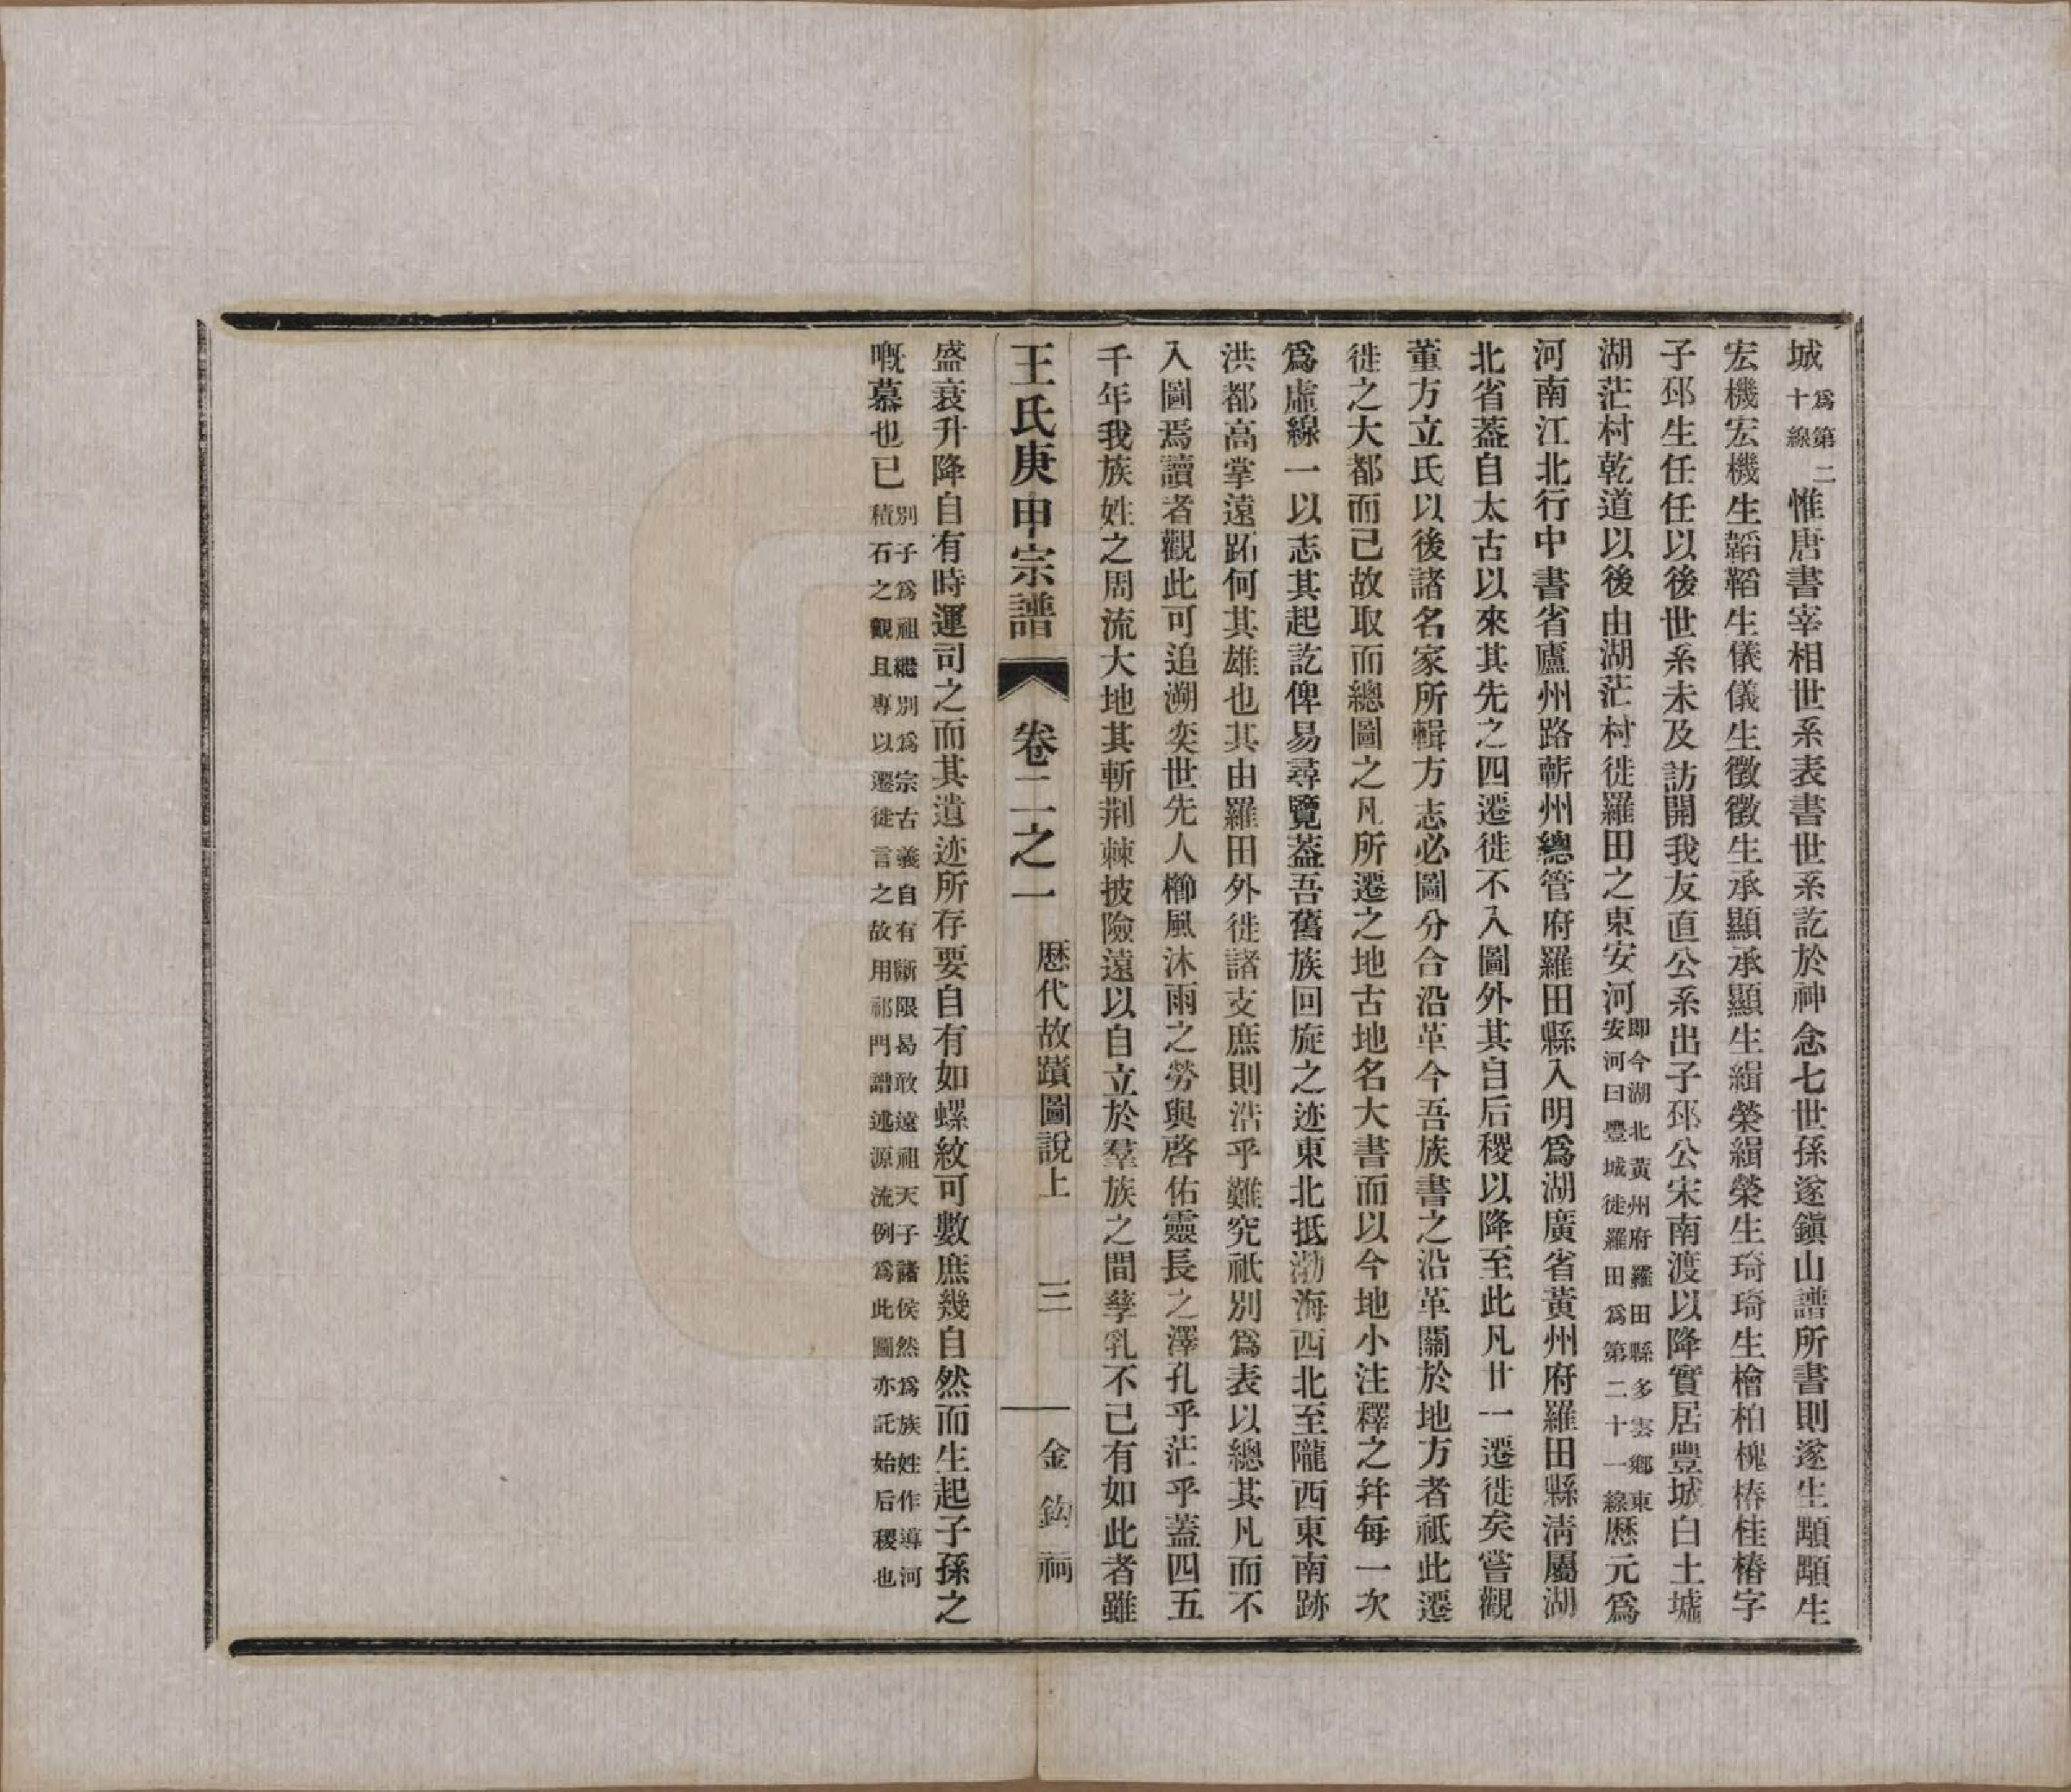 城爲第二十線惟唐書宰相世系表書世系訖於神念七世孫遂鎭山譜所書則遂生顒顒生
宏機宏機生韜韜生儀儀生徵徵生承顯承顯生緝榮緝榮生琦琦生檜柏槐椿桂椿字
子邳生任任以後世系未及訪開我友直公系出子邳公宋南渡以降實居豐城白土墟
湖茫村乾道以後由湖茫村徙羅田之東安河即今湖北黃州府羅田縣多雲鄉東安河曰豐城徙羅田爲第二十一線歷元爲
河南江北行中書省廬州路蘄州總管府羅田縣入明爲湖廣省黃州府羅田縣淸屬湖
北省蓋自太古以來其先之四遷徙不入圖外其自后稷以降至此凡廿一遷徙矣嘗觀
董方立氏以後諸名家所輯方志必圖分合沿革今吾族書之沿革關於地方者祇此遷
徙之大都而已故取而總圖之凡所遷之地古地名大書而以今地小注釋之幷每一次
爲虛線一以志其起訖俾易尋覽蓋吾舊族回旋之迹東北抵渤海西北至隴西東南跡
洪都高掌遠跖何其雄也其由羅田外徙諸支庶則浩乎難究祇別爲表以總其凡而不
入圖焉讀者觀此可追溯奕世先人櫛風沐雨之勞與啓佑靈長之澤孔乎茫乎蓋四五
千年我族姓之周流大地其斬荆棘披險遠以自立於羣族之間孳乳不已有如此者雖
王氏庚申宗譜 卷二之一 歷代故蹟圖說上 三 金鈎祠
盛衰升降自有時運司之而其遺迹所存要自有如螺紋可數庶幾自然而生起子孫之
嘅慕也已別子爲祖繼別爲宗古義自有斷限曷敢遠祖天子諸侯然爲族姓作導河積石之觀且專以遷徙言之故用祁門譜述源流例爲此圖亦託始后稷也